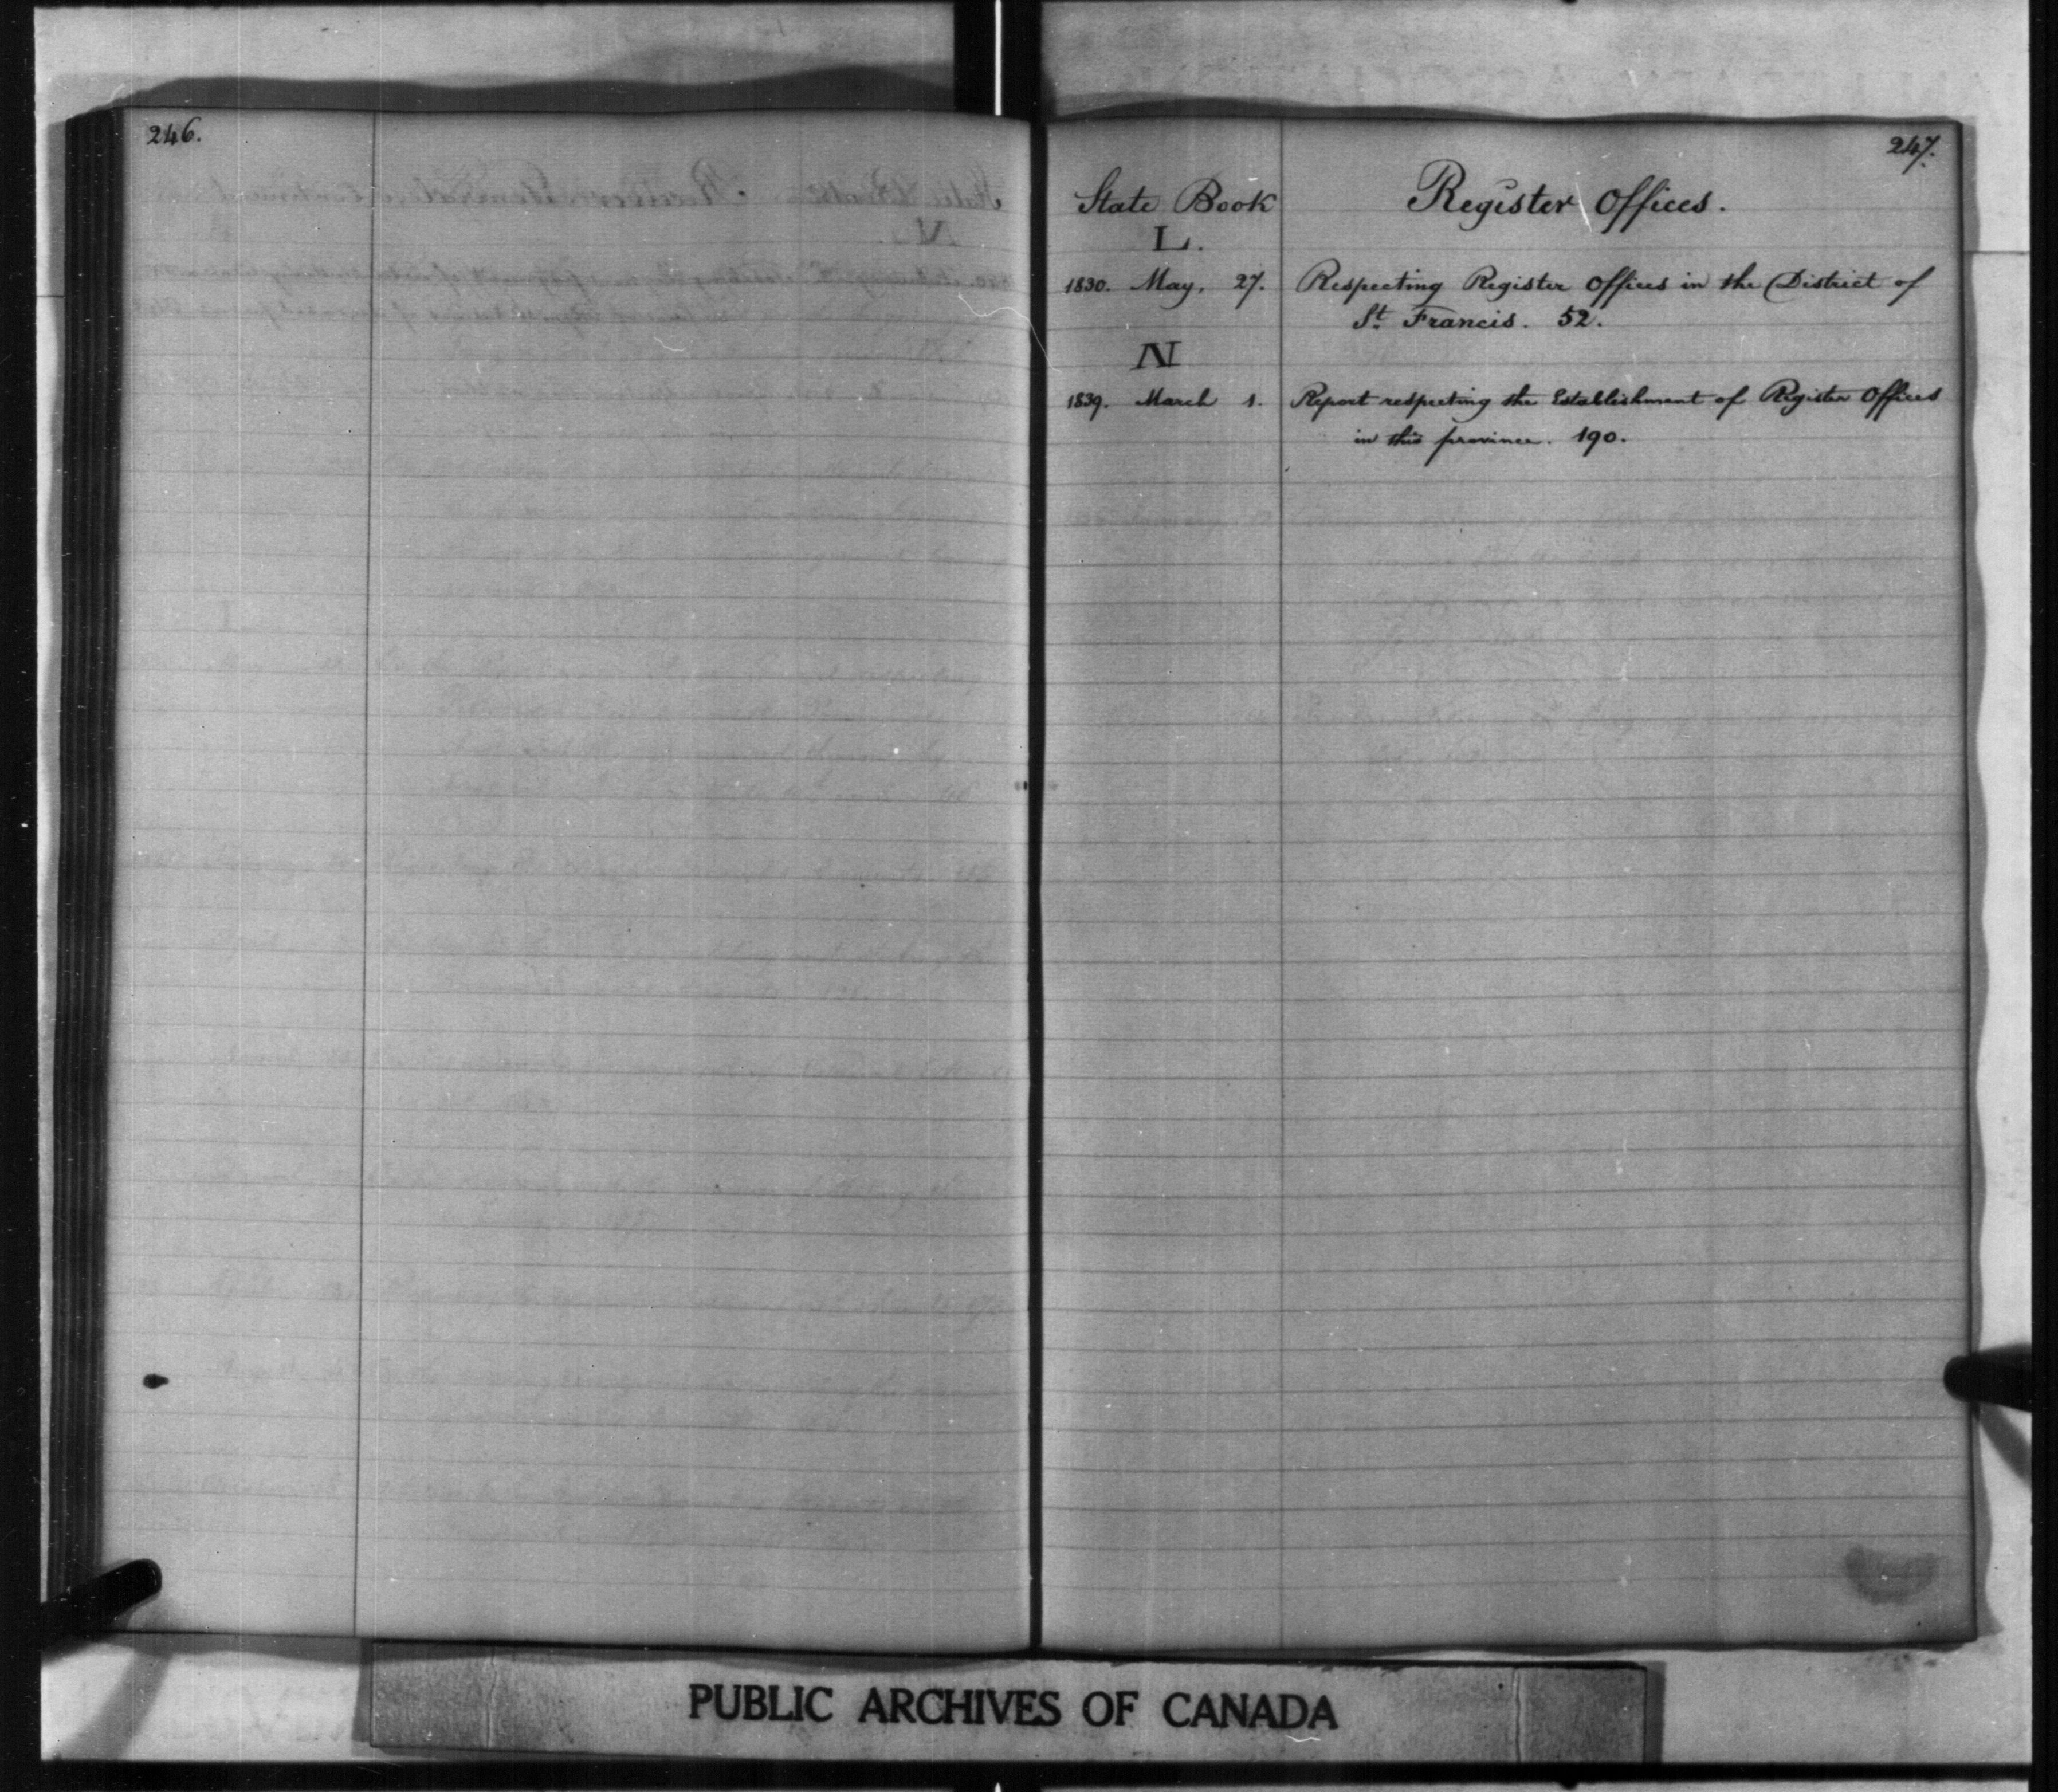 246.
247.
State Book Register Offices.
L.
1830. May, 27. Respecting Register Offices in the District of
St. Francis. 52.
N
1839. March 1. Report respecting the Establishment of Register Offices
in this province. 190.
PUBLIC ARCHIVES OF CANADA